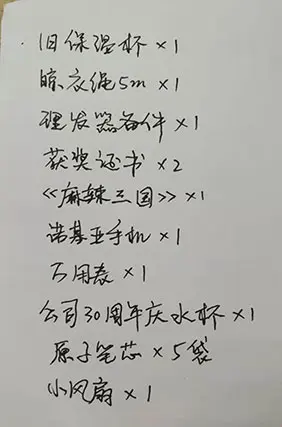 旧保温杯×1
晾衣绳5m×1
理发器备件×1
获奖证书×2
《麻辣三国》×1
诺基亚手机×1
万用表×1
公司30周年庆水杯×1
原子笔芯×5袋
小风扇×1